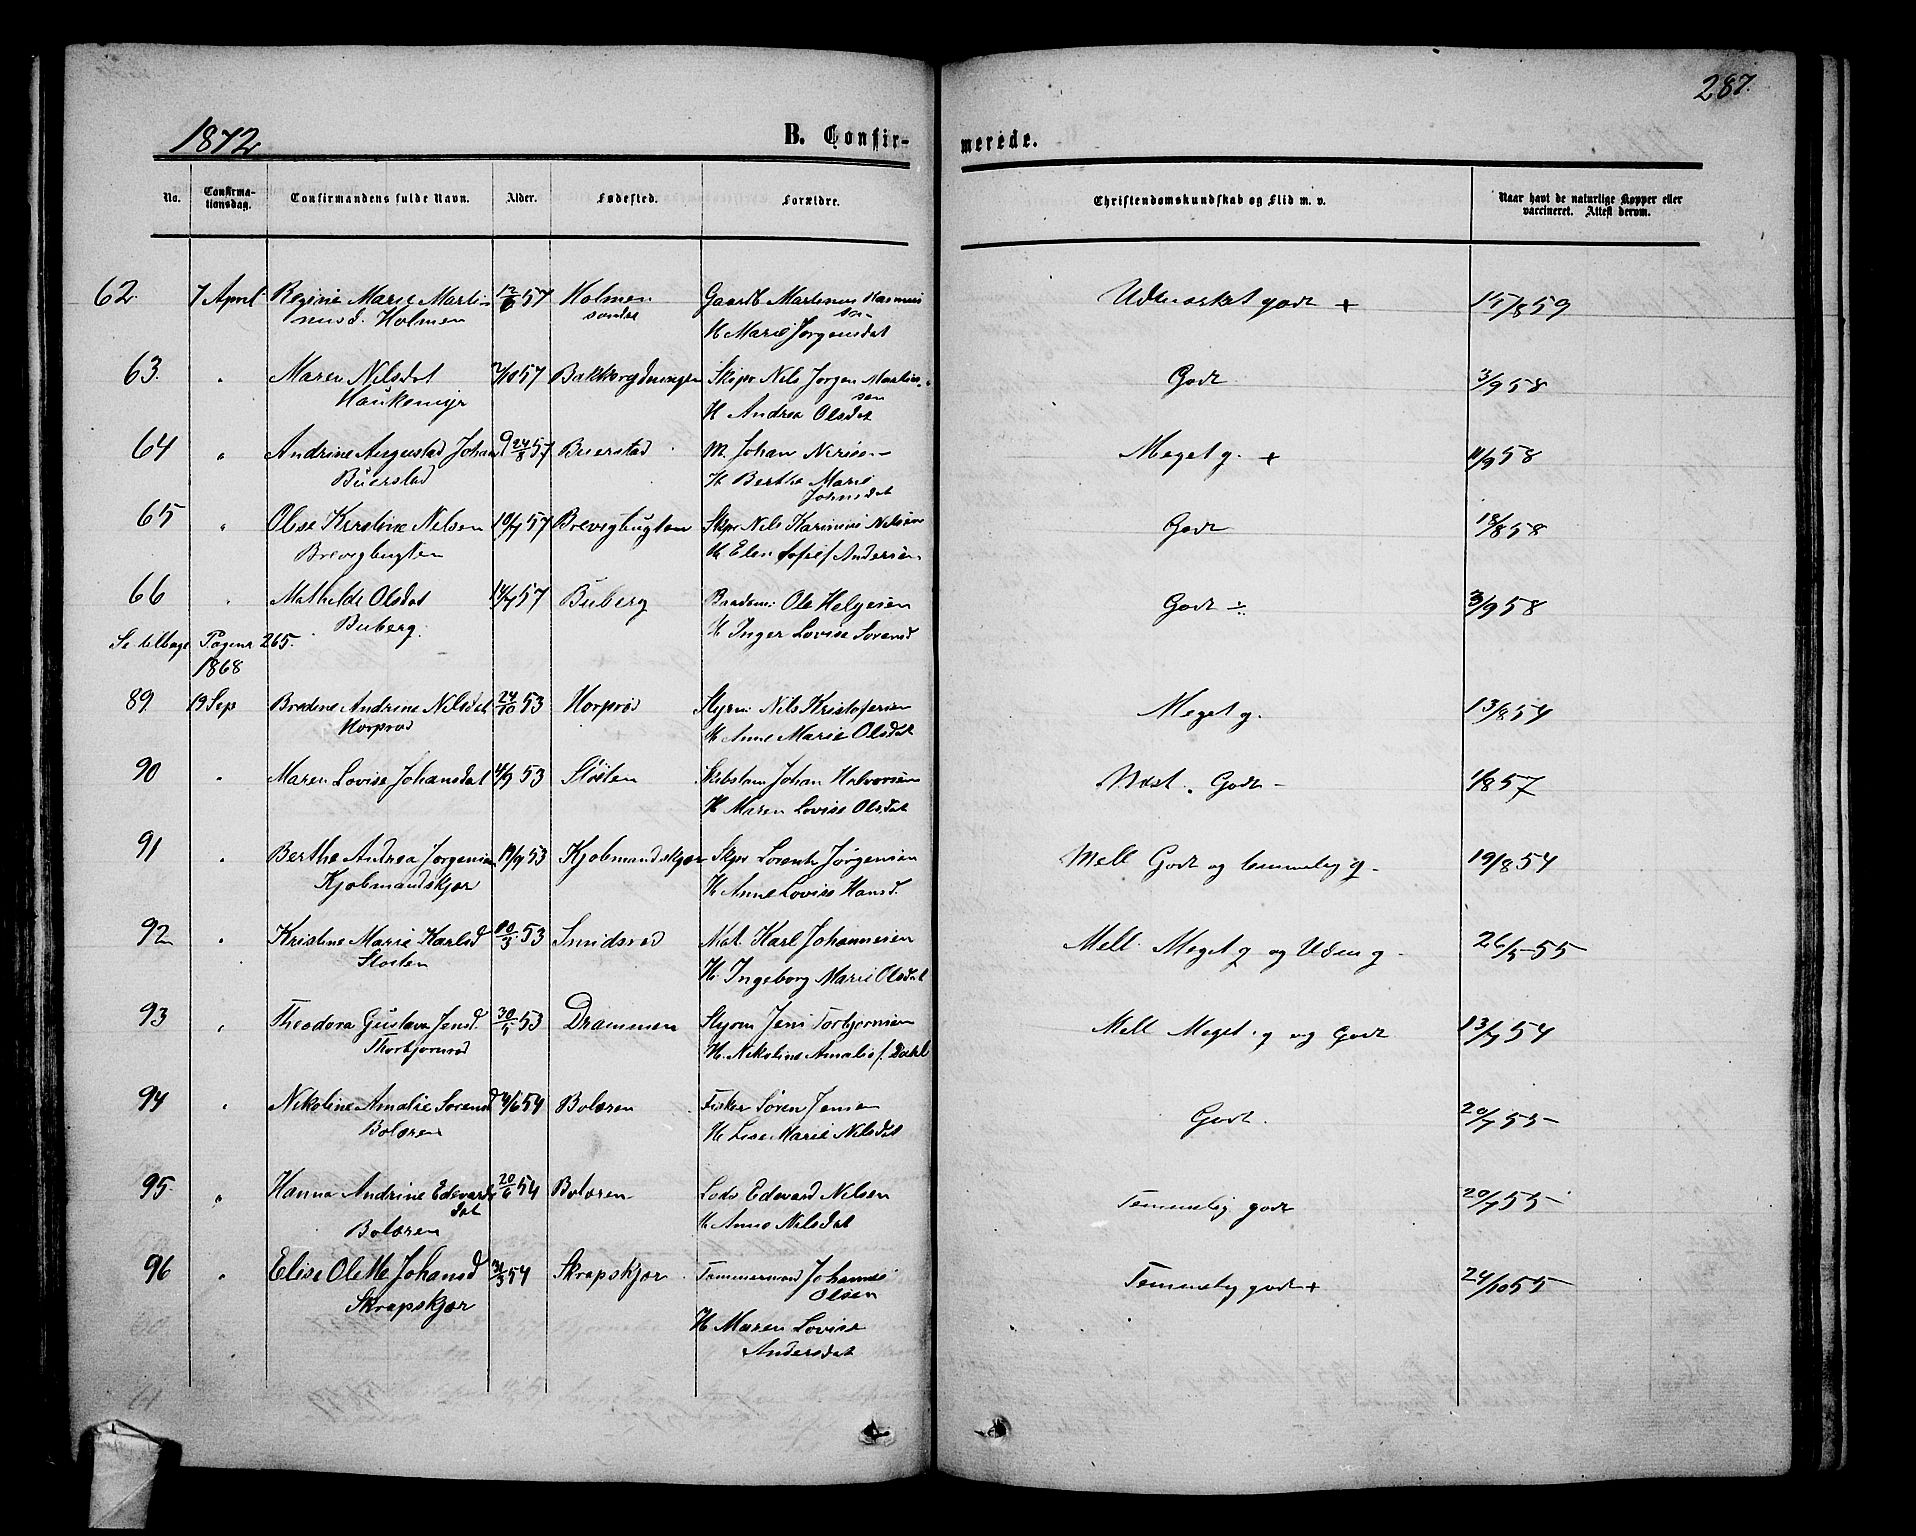 287.
1872
B. Confir-
merede.
No.
Confirma-
tionsdag.
Confirmandens fulde Navn.
Alder.
Fødested.
Forældre.
Christendomskundskab og Flid m. v.
Naar havt de naturlige Kopper eller
vaccineret. Attest derom.
62. 7 April Regine Marie Marti- 12/6 57 Holmen Gaardb Martinus Rasmus Udmærket godt + 15/8 59
nusd. Holmen søndre sen
H Marie Jørgensdat
63. " Maren Nilsdat /10 57 Bakkerydningen Skipr Nils Jørgen Martin- Godt 3/9 58
Haukemyr sen
H Andrea Olsdat
64 " Andrine Augustad Johan 24/8 57 Buerstad M. Johan Meget g. + 11/9 58
Buerstad H Berthe Marie
Johnsdat
65 " Olse Kirstine Nilsen 10/7 57 Brevigbugten Skpr Nils Karinius Nilsen Godt 18/8 58
Brevigbugten H Elen Sofie f Andersen
66 " Mathilde Olsdat 14/7 57 Buberg Baadsm: Ole Helgesen Godt ÷ 3/9 58
Buberg. H Inger Lovise Sørensd
Se tilbage Pagina 265.
1868
89 19 Sep Bredine Andrine Nilsdat 24/10 53 Horprød Styrm: Nils Kristofersen Meget g. 13/8 54
Horprød H Anne Marie Olsdat
90 " Maren Lovise Johansdat 4/9 53 Sløsten Skibstøm Johan Halvorsen Næst. Godt - 1/8 57
H Maren Lovise Olsdat
91 " Berthe Andrea Jørgensen /9 53 Kjøbmandskjær Skpr Lorents Jørgensen Mell Godt og temmelig g - 19/8 54
Kjøbmandskjær H Anne Lovise Hansd.
92 " Kristine Marie Karlsd 10/3 53 Smidsrød Mat. Karl Johannesen Mell. Meget g og Udm g - 26/5 55
Sløsten H. Ingeborg Marie Olsdat
93 " Theodora Gustava Jensd. 30/1 53 Drammen Styrm Jens Torbjørnsen Mell Meget. g og Godt 13/7 54
Thorbjørnrød H. Nikoline Amalie f. Dahl
94 " Nikoline Amalie Sørensd 4/6 54 Bolæren Fisker Søren Jensen Godt. 20/7 55
Bolæren H Lise Marie Nilsdat
95 " Hanna Andrine Edevards 20/6 54 Bolæren Lods Edevard Nilsen Temmelig godt 20/7 55
dat H Anne Nilsdat
Bolæren
96 " Elise Olette Johansd 31/3 54 Skrapskjær Tømmermand Johannes Temmelig godt + 24/10 55
Skrapskjær Olsen
H Maren Lovise
Andersdat